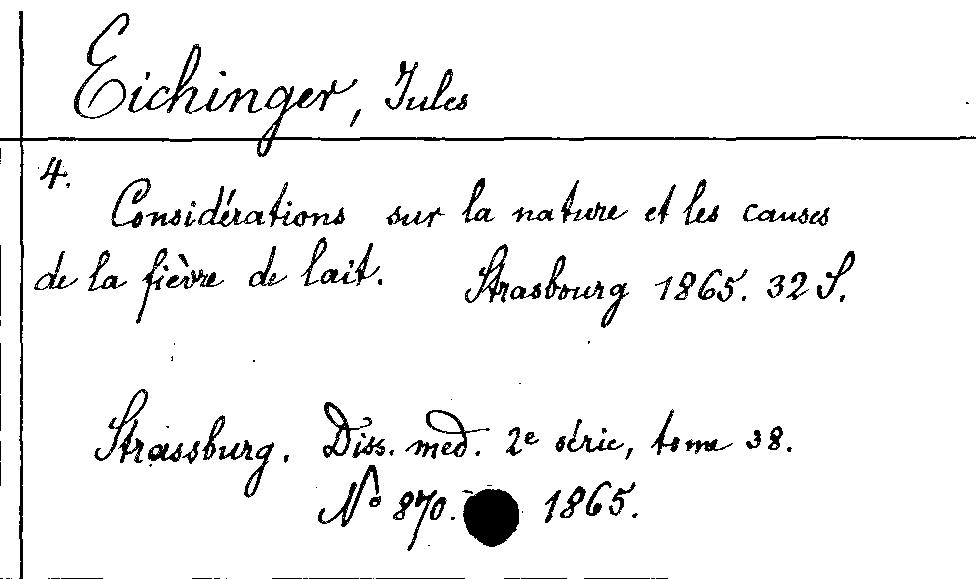 Eichinger, Jules
4.
Considérations sur la nature et les causes
de la fièvre de lait. Strasbourg 1865. 32 S.
Strassburg. Diss. med. 2e série, tome 38.
No 870. 1865.